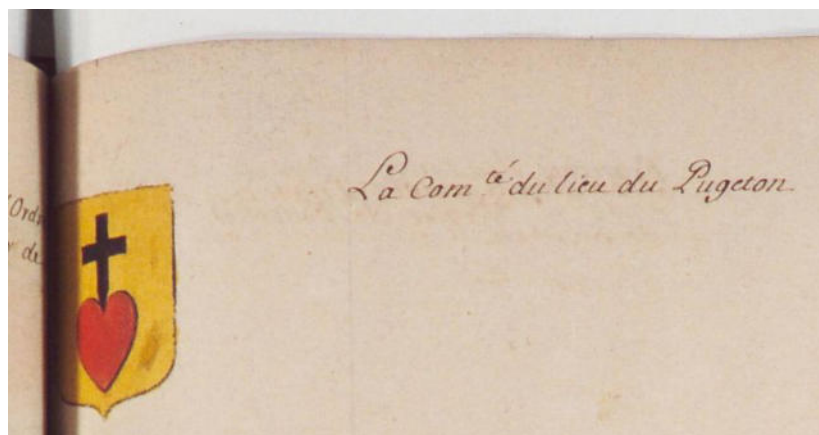 Ordr
de
La Com.té du lieu du Pugeton.